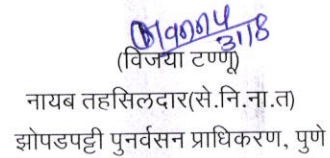 31/8
(विजया टण्णू)
नायब तहसिलदार(से.नि.ना.त)
झोपडपट्टी पुनर्वसन प्राधिकरण, पुणे